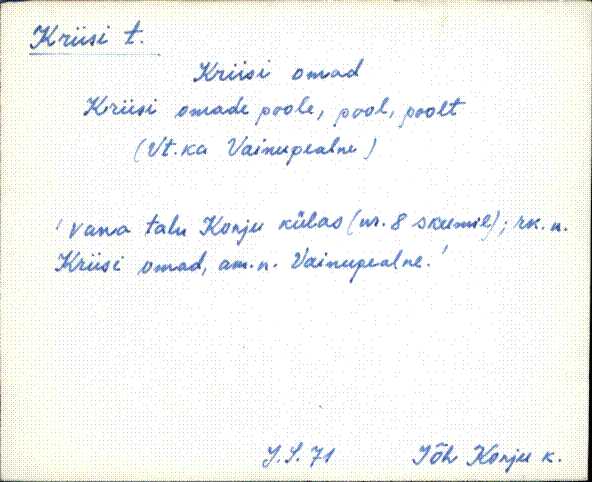 Kriisi t.
Kriisi omad
Kriisi omade poole, pool, poolt
(Vt. ka Vainupealne)
'vana talu Konju külas (nr. 8 skeemil); rk. n.
Kriisi omad, am. n. Vainupealne.'
J.S. 71 Jõh Konju k.